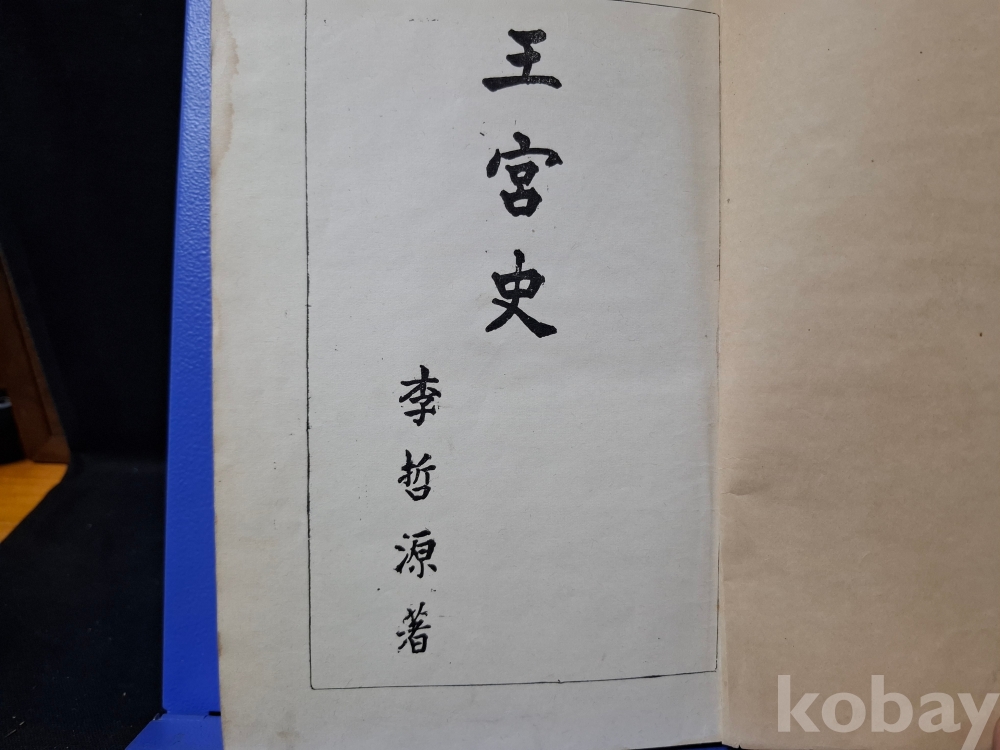 王宮史
李哲源著
kobay